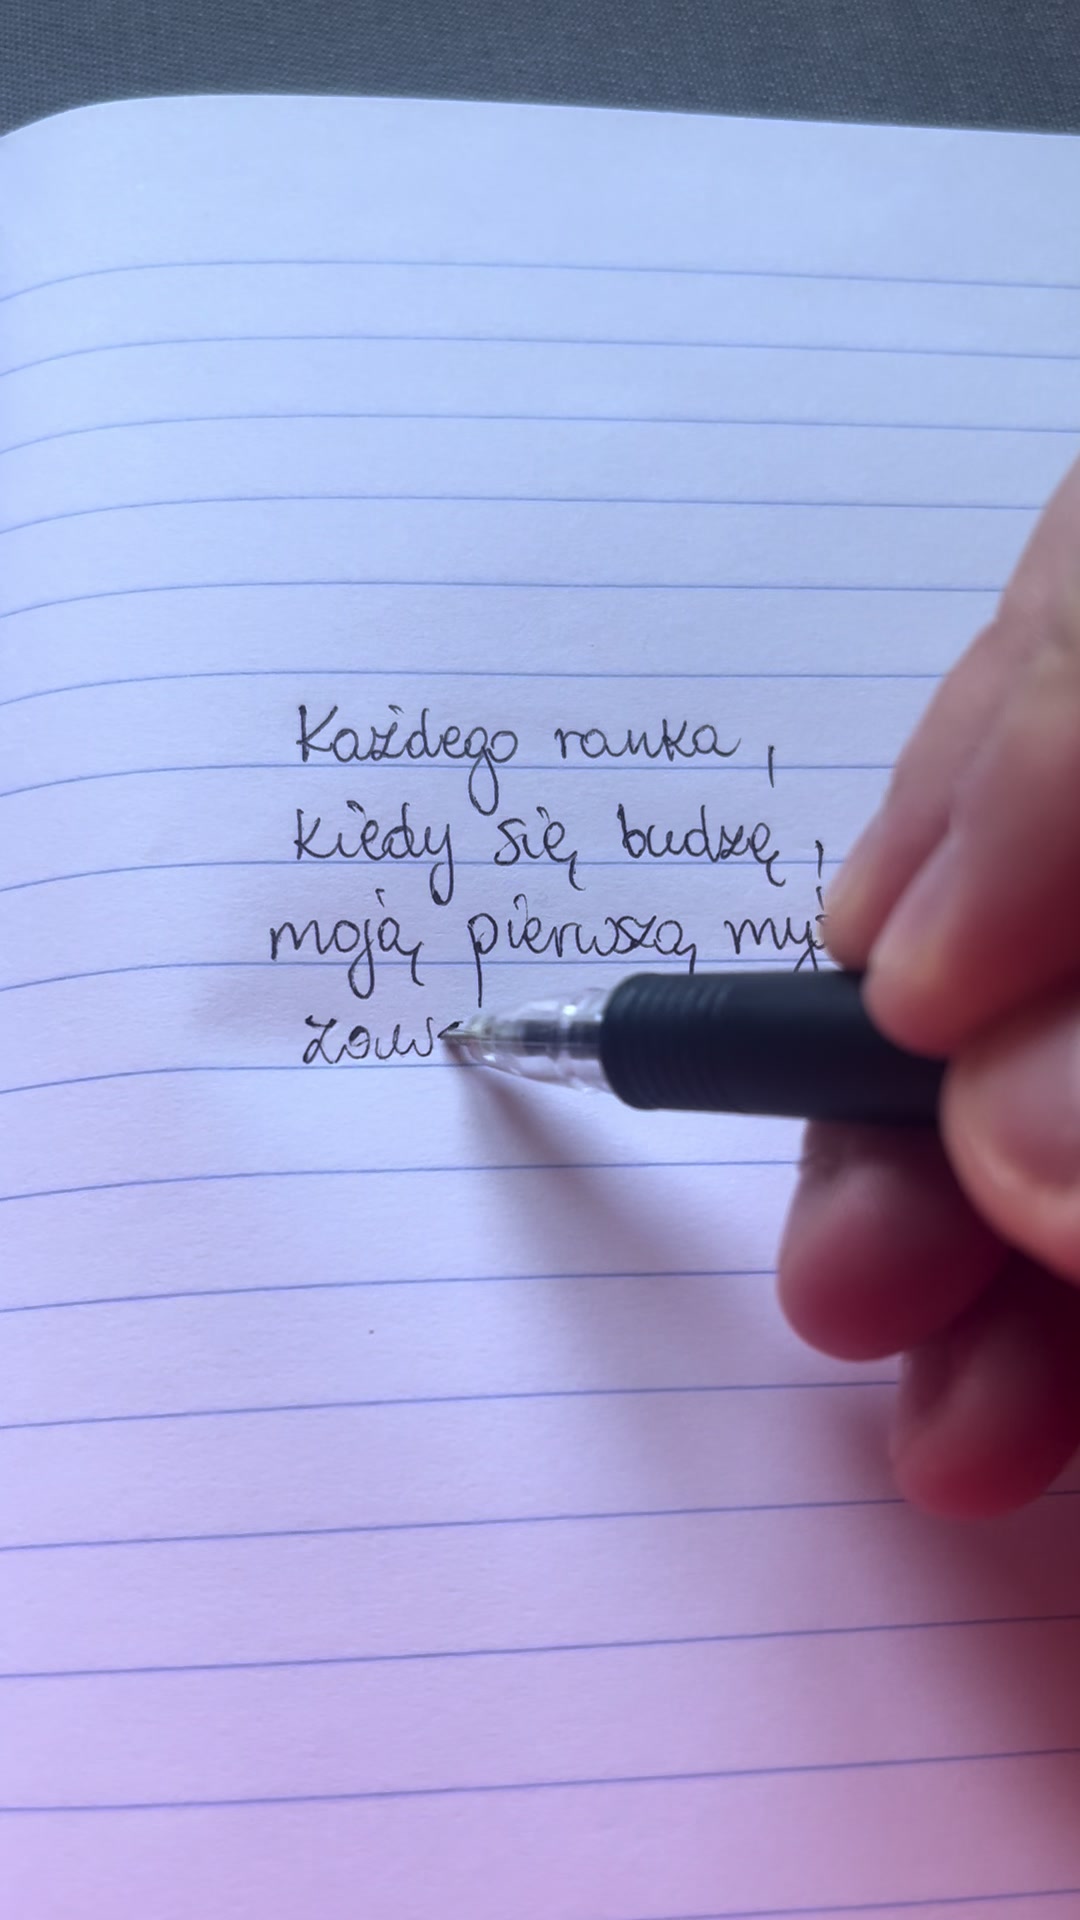 Każdego ranka,
kiedy się budzę,
moją pierwszą